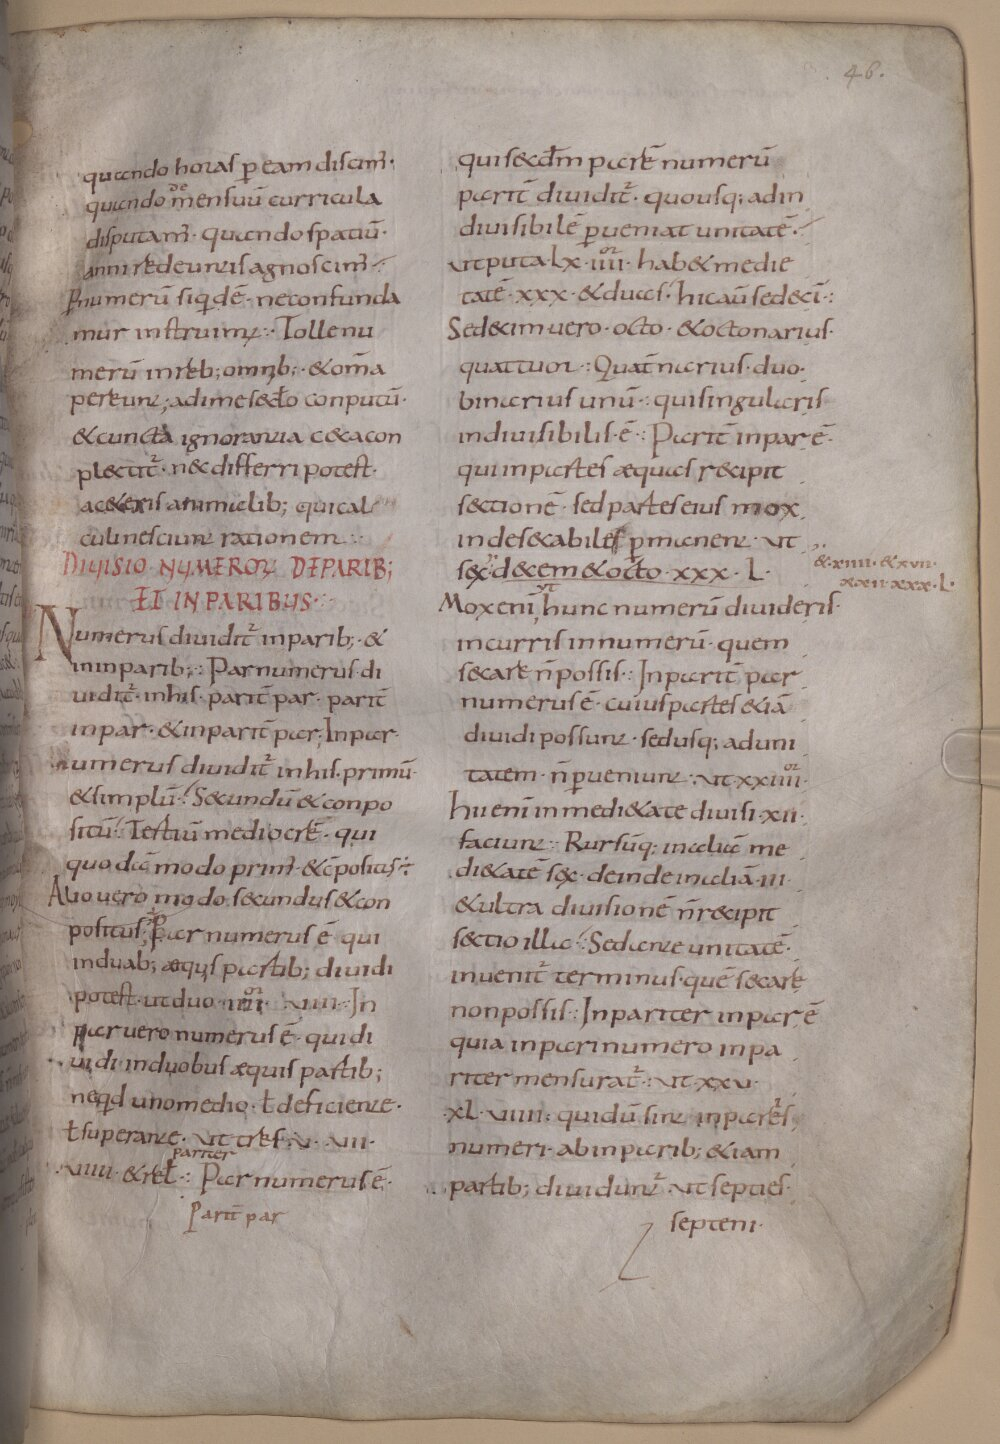 46.
quando horas p̄ eam discim̄·
quando de mensuū curricula
disputam̄· quando spatiū·
anni redeuntis agnoscim̄
P̄ numerū siqdē· ne confunda
mur instruimr̄· Tolle nu
merū in reb; omnib;· & om̄a
pereunt; adime secl̄o conputū·
& cuncta ignorantia ceca con
plectit̄· nec differri potest
a ceteris animalib; qui cal
culi nesciunt rationem
DIUISIO NUMEROR̄ DE PARIB;
ET IN PARIBUS
Numerus diuidit̄ in parib; &
in inparib;· Par numerus di
uidit̄· in his· parit̄ par· parit̄
inpar· & inparit̄ par; Inpar
numerus diuidit̄ in his· primū·
& simplū· Secundū & conpo
sitū· Tertiū mediocrē· qui
quodā modo prim̄· & cōpositus·
Alio vero modo secundus & con
positus· Par numerus ē qui
in duab; æqis partib; diuidi
potest· ut duo· iiii or· viiii· In
par vero numerus ē· qui di
uidi in duobus æquis partib;
neqd uno medio· ł deficiente·
ł superante· ut tres· v· vii·
viiii· & rel̄· Pariter Par numerus ē·
Parit̄ par
qui secd̄m parē numerū
parit̄ diuidit̄· quousq; ad in
diuisibilē p̄ueniat unitatē·
ut puta· lx· iiii or· habet medie
tatē· xxx· & duas· hi cau sedecī·
Sedecim vero· octo· & octonarius·
quattuor· Quat̄narius· duo·
binarius unū· qui singularis
indiuisibilis· ē· Parit̄ inpar ē·
qui in partes æquas recipit
sectionē· sed partes eius mox
indesecabiles p̄manent· ut
sex· decem & octo· xxx· L·
& xiiii· & xvii·
xxii· xxx· L·
Mox enī ut hunc numerū diuideris·
incurris in numerū· quem
secare n̄ possis· Inparit̄ par
numerus ē· cuius partes etiā
diuidi possunt· sed usq; ad uni
tatem· n̄ p̄ueniunt· ut xxiiii or
hi enī in medietate diuisi· xii·
faciunt· Rursūq; in aliā me
dietatē sex· deinde in aliā· iii·
& ultra diuisionē n̄ recipit
sectio illa· Sed ante unitatē·
inuenit̄ terminus· quē secare
non possis· Inpariter inpar ē
quia inpari numero inpa
riter mensurat̄· ut· xxv·
xL· viiii· qui dū sint inpares
numeri· ab inparib; etiam
partib; diuidunt̄· ut septies·
septeni·